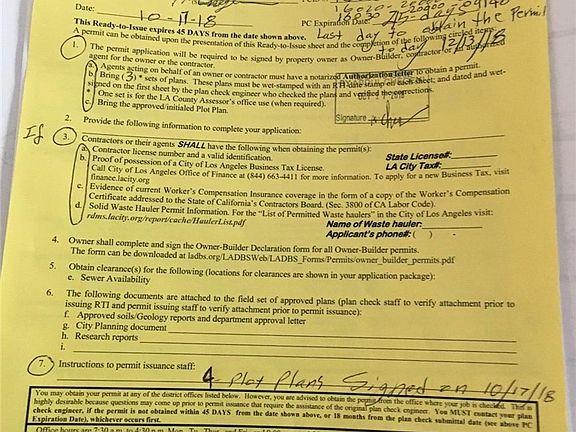 Date: 10-17-18
PC Expiration Date
This Ready-to-Issue expires 45 DAYS from the date shown above.
Last day to obtain the Permit
A permit can be obtained upon the presentation of this Ready-to-Issue sheet and the completion of the following circled items:
to day 12/13/18
1. The permit application will be required to be signed by property owner as Owner-Builder, contractor or an authorized
agent for the owner or the contractor.
a. Agents acting on behalf of an owner or contractor must have a notarized Authorization letter to obtain a permit.
b. Bring (3) sets of plans. These plans must be wet-stamped with an RTI date stamp on each sheet; and dated and wet-
signed on the first sheet by the plan check engineer who checked the plans and verified the corrections.
* One set is for the LA County Assessor's office use (when required).
c. Bring the approved/initialed Plot Plan.
Signature
2. Provide the following information to complete your application:
If
3. Contractors or their agents SHALL have the following when obtaining the permit(s):
a. Contractor license number and a valid identification. State License#:
b. Proof of possession of a City of Los Angeles Business Tax License. LA City Tax#:
Call City of Los Angeles Office of Finance at (844) 663-4411 for more information. To apply for a new Business Tax, visit
finance.lacity.org
c. Evidence of current Worker's Compensation Insurance coverage in the form of a copy of the Worker's Compensation
Certificate addressed to the State of California's Contractors Board. (Sec. 3800 of CA Labor Code).
d. Solid Waste Hauler Permit Information. For the "List of Permitted Waste haulers" in the City of Los Angeles visit:
rdms.lacity.org/report/cache/HaulerList.pdf Name of Waste hauler:
Applicant's phone#: ( )
4. Owner shall complete and sign the Owner-Builder Declaration form for all Owner-Builder permits.
The form can be downloaded at ladbs.org/LADBSWeb/LADBS_Forms/Permits/owner_builder_permits.pdf
5. Obtain clearance(s) for the following (locations for clearances are shown in your application package):
e. Sewer Availability
6. The following documents are attached to the field set of approved plans (plan check staff to verify attachment prior to
issuing RTI and permit issuing staff to verify attachment prior to permit issuance):
f. Approved soils/Geology reports and department approval letter
g. City Planning document
h. Research reports
i.
7. Instructions to permit issuance staff:
4 - Plot Plans Signed on 10/17/18
You may obtain your permit at any of the district offices listed below. However, you are advised to obtain the permit from the office where your job is checked. This is
highly desirable because questions may come up prior to permit issuance that require the assistance of the original plan check engineer. You MUST contact your plan
check engineer, if the permit is not obtained within 45 DAYS from the date shown above, or 18 months from the plan check submittal date (see above PC
Expiration Date), whichever occurs first.